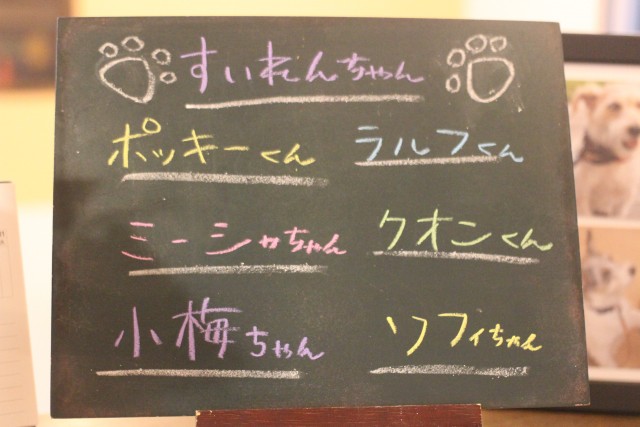 すいれんちゃん
ポッキーくん
ラルフくん
ミーシャちゃん
クオンくん
小梅ちゃん
ソフィちゃん